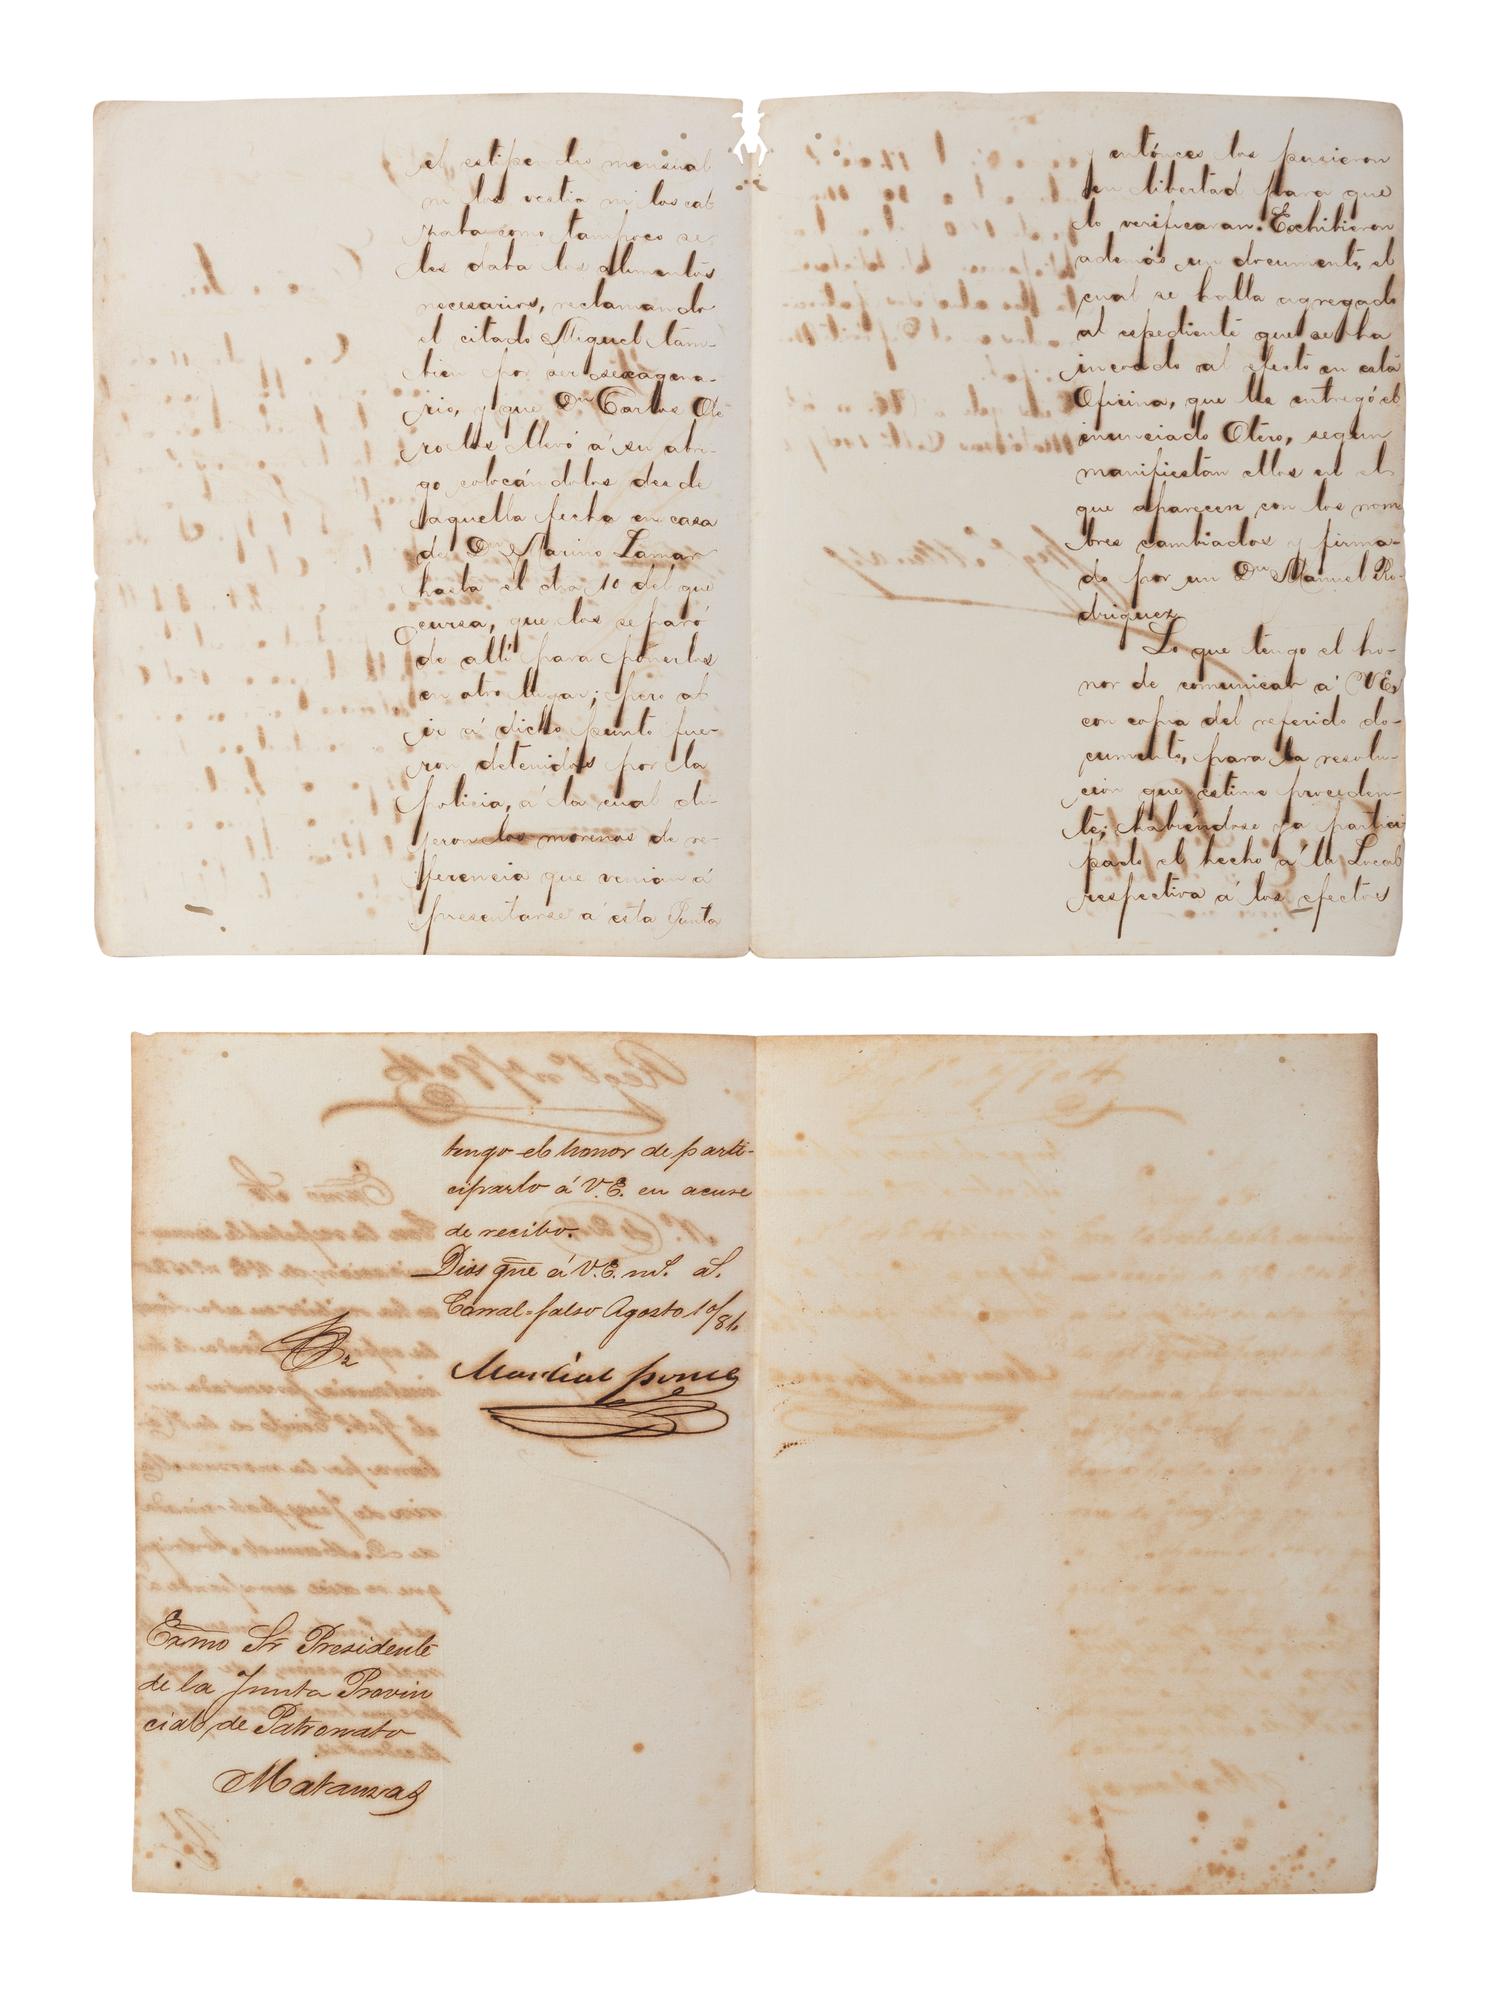 el estipendio mensual
ni los vestia ni los cal
zaba como tampoco se
les daba los alimentos
necesarios, reclamando
el citado Miguel tam-
bien por ser sexagena-
rio, y que Dn Carlos Ote
ro los llevó á su abri-
go colocándolos desde
aquella fecha en casa
de Dn Marino Lamar
hasta el dia 10 del que
cursa, que los separó
de allí para ponerlos
en otro lugar; pero al
ir á dicho punto fue-
ron detenidos por la
policia, á la cual di-
jeron los morenos de re-
ferencia que venian á
presentarse á esta Junta
y entónces los pusieron
en libertad para que
lo verificaran. Exhibieron
además un documento, el
cual se halla agregado
al espediente que se ha
incoado al efecto en esta
Oficina, que les entregó el
enunciado Otero, segun
manifiestan ellos en el
que aparecen con los nom
bres cambiados y firma-
do por un Dn Manuel Ro-
driguez.
Lo que tengo el ho-
nor de comunicar á V.E.
con copia del referido do-
cumento, para la resolu-
cion que estime proceden-
te; habiéndose ya partici
pado el hecho á la Local
respectiva á los efectos
tengo el honor de parti-
ciparlo á V.E. en acuse
de recibo.
Dios gue á V.E. ms. as.
Corral-falso Agosto 10/86
Martial Ponce
Exmo Sr Presidente
de la Junta Provin
cial de Patronato
Matanzas